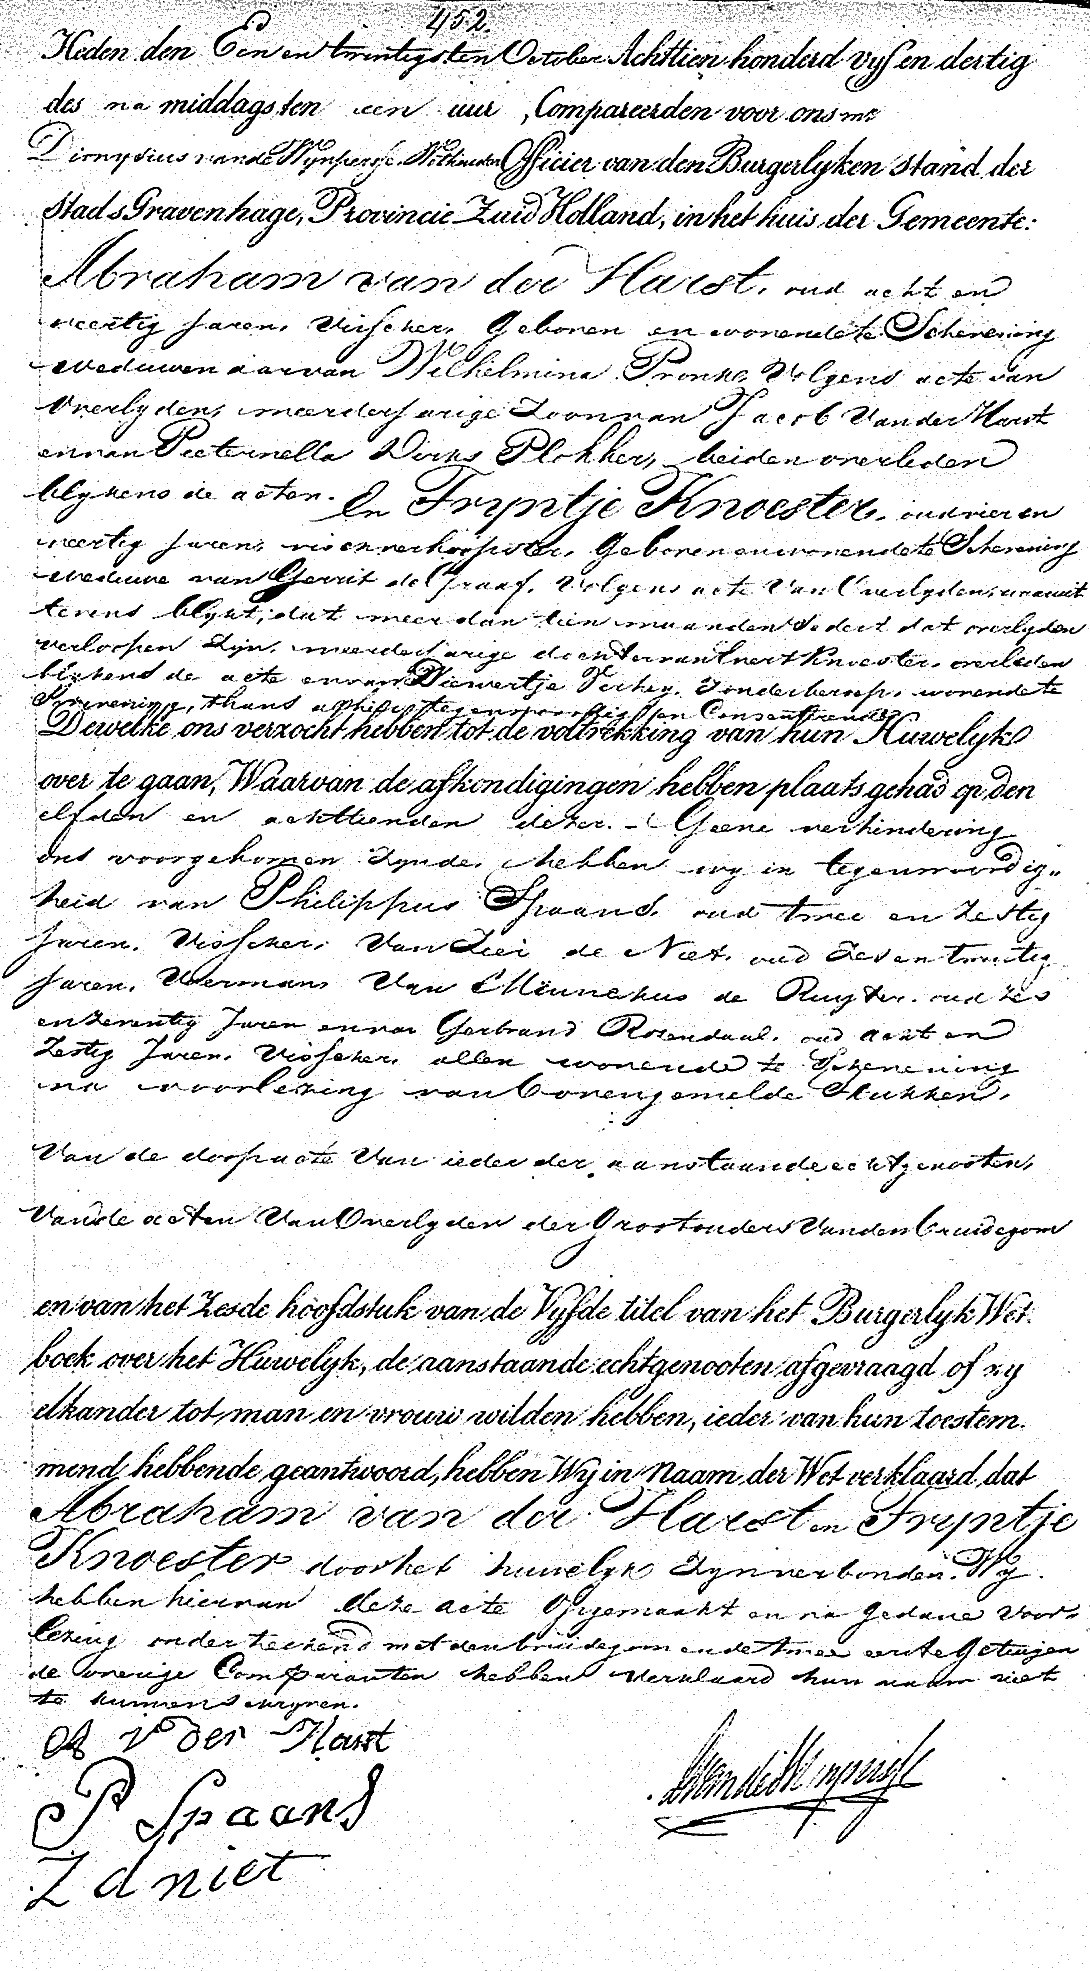 452.
Heden den Een en twintigsten October Achttien honderd vyf en dertig
des na middags ten een uur, Compareerden voor ons mr
Dionysius van de Wynpersse Wethouder Officier van den Burgerlyken stand der
stad sGravenhage, Provincie Zuid Holland, in het huis der Gemeente:
Abraham van der Harst, oud acht en
veertig Jaren, Visscher, Geboren en wonende te Schevening
weduwenaar van Wilhelmina Pronk, Volgens acte van
Overlyden, meerderjarige Zoon van Jacob Van der Harst
en van Pieternella Dirks Plokker, beiden overleden
blykens de acten. En Tryntje Knoester, oud vier en
veertig Jaren, vischverkoopster, Geboren en wonende te Schevening
weduwe van Gerrit de Graaf, Volgens acte Van Overlyden, waaruit
tevens blykt, dat meer dan tien maanden sedert dat overlyden
verloopen Zyn, meerderjarige dochter van Knoester, overleden
blykens de acte en van Diewertje Zonder beroep, wonende te
Schevening, thans alhier tegenwoordig en Consenteerende
Dewelke ons verzocht hebben tot de voltrekking van hun Huwelyk
over te gaan, Waarvan de afkondigingen hebben plaats gehad op den
elfden en achttienden dezer. - Geene verhindering
ons voorgekomen Zynde, hebben wy in tegenwoordig„
heid van Philippus Spaans, oud twee en Zestig
Jaren, Visscher, Van Zier de Niet, oud Zes en twintig
Jaren, Voerman, Van Minnekus de Ruyter, oud Zes
en Zeventig Jaren en van Gerbrand Rozendaal, oud acht en
Zestig Jaren, Visscher, allen wonende te Schevening
na voorlezing van bovengemelde Stukken,
Van de doopacte Van ieder der aanstaande echtgenooten,
Van de acten Van Overlyden der Grootouders Van den bruidegom
en van het Zesde hoofdstuk van de Vyfde titel van het Burgerlyk Wet-
boek over het Huwelyk, de aanstaande echtgenooten afgevraagd of zy
elkander tot man en vrouw wilden hebben, ieder van hun toestem-
mend hebbende geantwoord, hebben Wy in Naam der Wet verklaard, dat
Abraham van der Harst en Tryntje
Knoester door het huwelyk Zyn verbonden. Wy
hebben hiervan deze acte Opgemaakt en na gedane voor-
lezing onderteekend met den bruidegom en de twee eerste getuigen
de overige Comparanten hebben Verklaard hun naam niet
te kunnen schryven.
A v der Harst
P Spaans
Z d niet